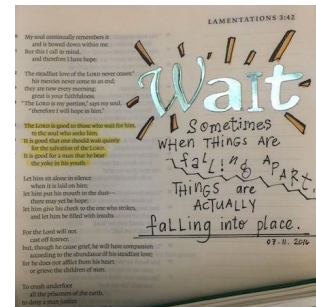 LAMENTATIONS 3:42
My soul continually remembers it
and is bowed down within me.
But this I call to mind,
and therefore I have hope:
The steadfast love of the LORD never ceases;
his mercies never come to an end;
they are new every morning;
great is your faithfulness.
"The LORD is my portion," says my soul,
"therefore I will hope in him."
The LORD is good to those who wait for him,
to the soul who seeks him.
It is good that one should wait quietly
for the salvation of the LORD.
It is good for a man that he bear
the yoke in his youth.
Let him sit alone in silence
when it is laid on him;
let him put his mouth in the dust—
there may yet be hope;
let him give his cheek to the one who strikes,
and let him be filled with insults.
For the Lord will not
cast off forever,
but, though he cause grief, he will have compassion
according to the abundance of his steadfast love;
for he does not afflict from his heart
or grieve the children of men.
To crush underfoot
all the prisoners of the earth,
to deny a man justice
Wait
Sometimes
WHEN THINGS ARE
falling APART,
THINGS are
ACTUALLY
falling into place.
03.11.2016